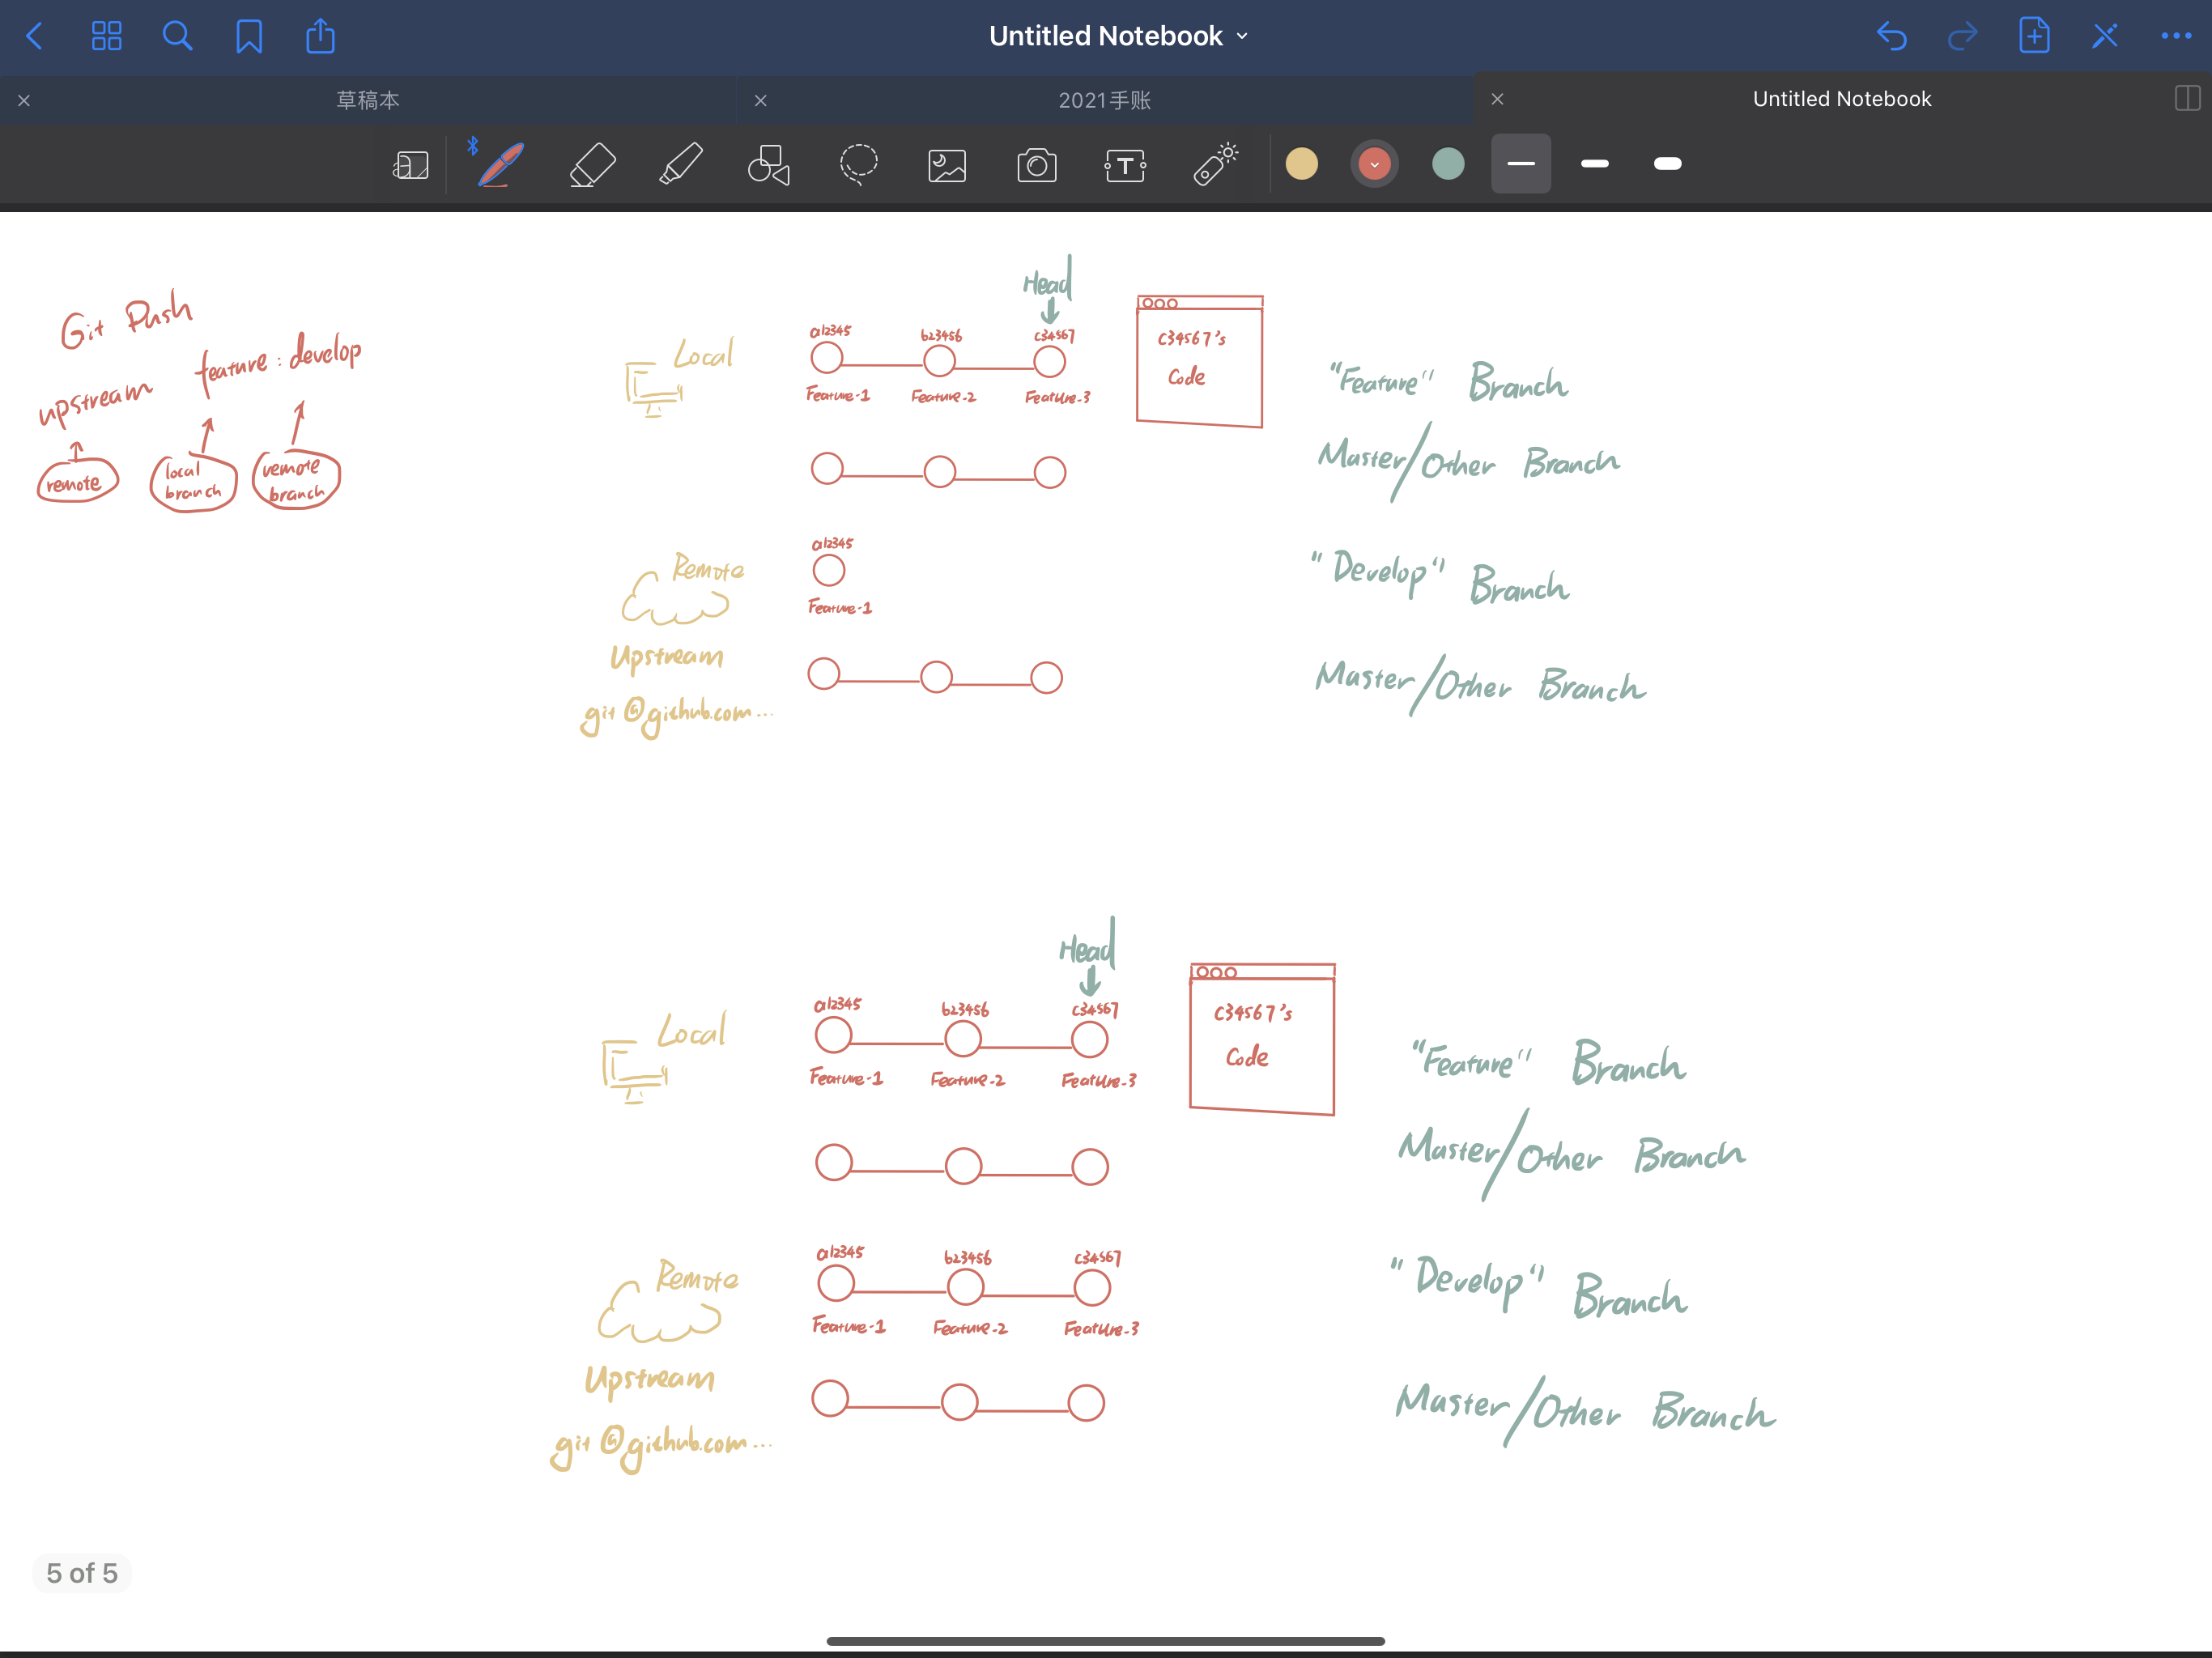 Untitled Notebook
草稿本
2021手账
Untitled Notebook
Git Push
upstream feature : develop
remote
local
branch
remote
branch
Head
Local
a12345 b23456 c34567
Feature-1 Feature-2 Feature-3
c34567's
Code
"Feature" Branch
Master/Other Branch
Remote
a12345
Feature-1
"Develop" Branch
Upstream
Master/Other Branch
git@github.com...
Head
Local
a12345 b23456 c34567
Feature-1 Feature-2 Feature-3
c34567's
Code
"Feature" Branch
Master/Other Branch
Remote
a12345 b23456 c34567
Feature-1 Feature-2 Feature-3
"Develop" Branch
Upstream
Master/Other Branch
git@github.com...
5 of 5